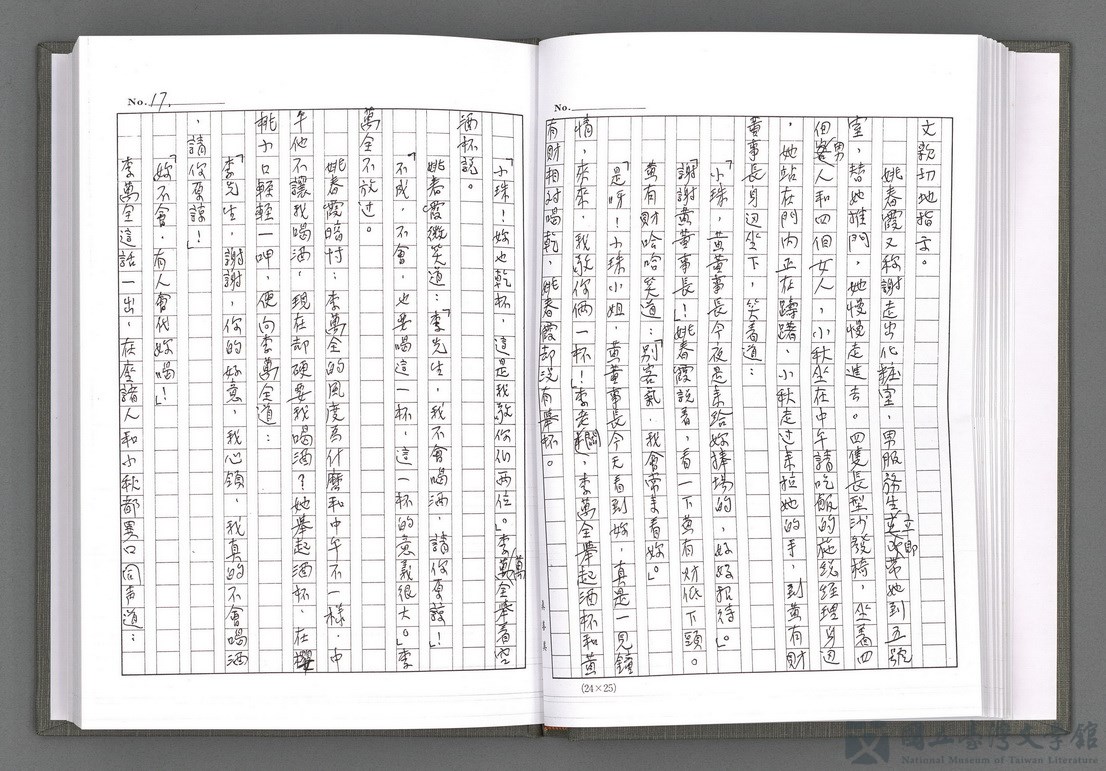 文欽切地指示。
姚春霞又称謝走出化粧室，男服務生立即帶她到五號
室，替她推門，她慢慢走進去。四隻長型沙發椅，坐着四
個男人和四個女人，小秋坐在中午請吃飯的施総經理身边
，她站在門內正在躊躇，小秋走过來拉她的手，到黃有財
董事長身辺坐下，笑着道：
「小珠，黃董事長今夜是來給妳捧場的，好好招待」。
「謝謝黃董事長！」姚春霞説着，看一下黃有財低下頭。
黃有財哈哈笑道：「別客氣，我會常來看妳」。
「是呀！小珠小姐，黃董事長今天看到妳，真是一見鍾
情，來來，我敬你倆一杯！」李老闆，李萬全舉起酒杯和黃
有財相对喝乾，姚春霞却没有舉杯。
No.
(24×25)
No. 17.
「小珠！妳也乾杯，這是我敬你们兩位」。李萬全舉着空
酒杯説。
姚春霞微笑道：「李先生，我不會喝酒，請你原諒」！
「不成，不會，也要喝這一杯，這一杯的意義很大」。李
萬全不放过。
姚春霞暗忖：李萬全的風度為什麼和中午不一樣，中
午他不讓我喝酒，現在却硬要我喝酒？她舉起酒杯，在櫻
桃小口輕輕一呷，便向李萬全道：
「李先生，謝謝，你的好意，我心領，我真的不會喝酒
，請你原諒」！
「妳不會，有人會代妳喝！」
李萬全這話一出，在座諸人和小秋都異口同声道：
國立臺灣文學館
National Museum of Taiwan Literature